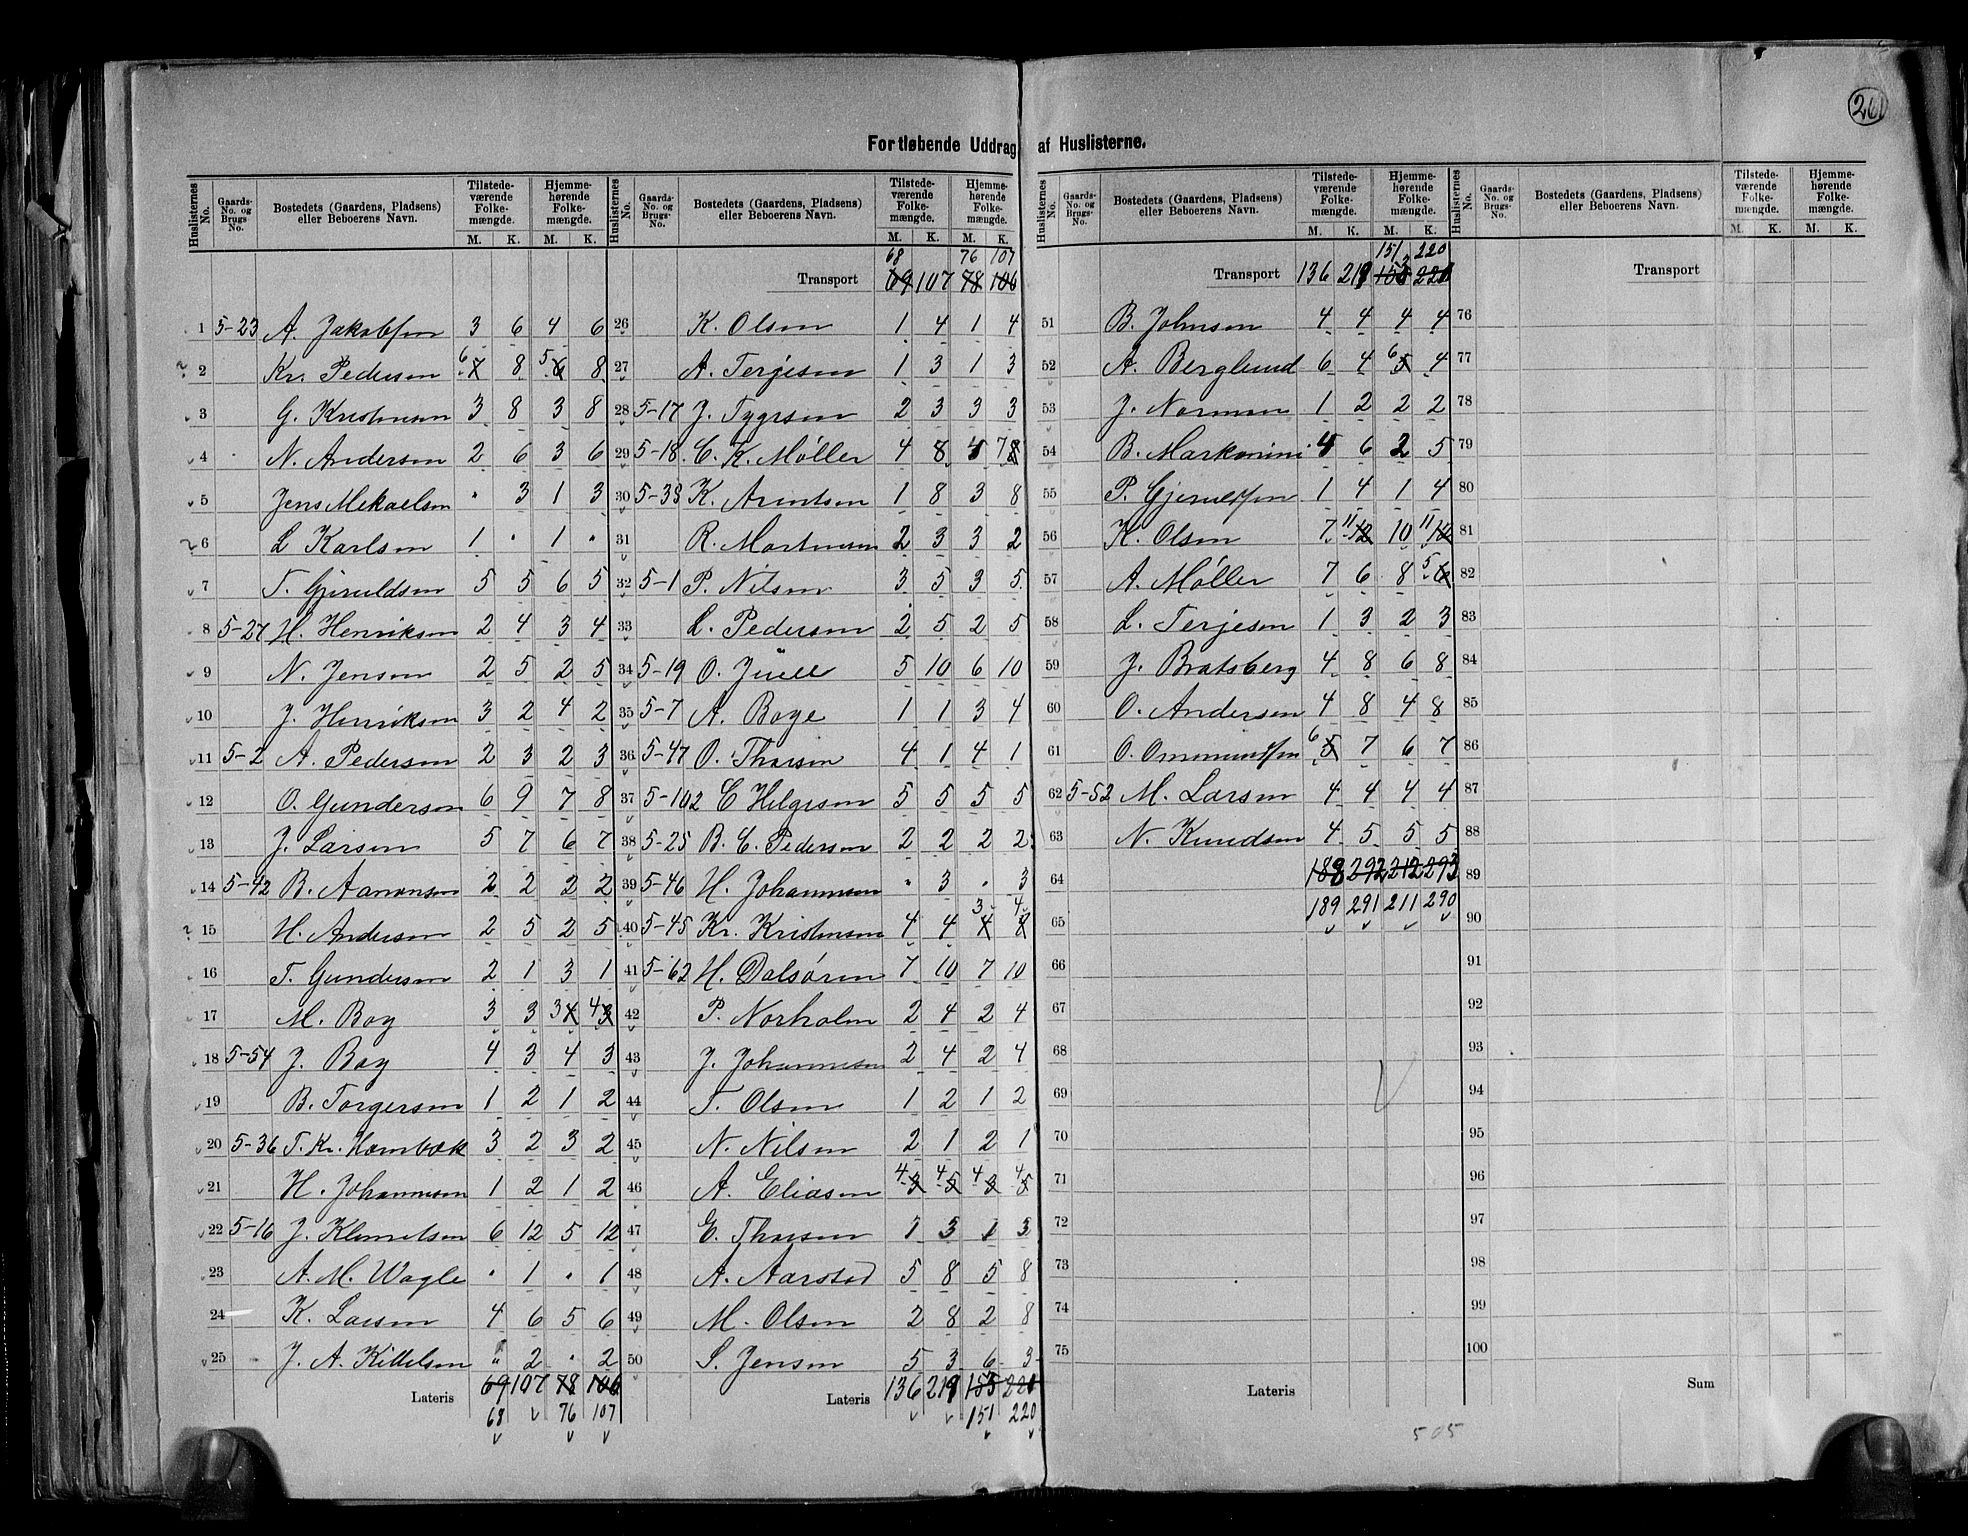 261
Fortløbende Uddrag af Huslisterne.
Huslisternes No. Gaards- No. og Brugs No. Bostedets (Gaardens, Pladsens) eller Beboerens Navn. Tilstede-værende Folke-mængde. Hjemme-hørende Folke-mængde.
M. K. M. K.
1 5-23 A. Jakobsen 3 6 4 6
2 Kr. Pedersen 6 7 8 5 6 8
3 G. Kristensen 3 8 3 8
4 N. Andersen 2 6 3 6
5 Jens Mekaelsen " 3 1 3
6 L Karlsen 1 " 1 "
7 T. Gjeruldsen 5 5 6 5
8 5-27 H. Henriksen 2 4 3 4
9 N. Jensen 2 5 2 5
10 J. Henriksen 3 2 4 2
11 5-2 A. Pedersen 2 3 2 3
12 O. Gunderson 6 9 7 8
13 J. Larsen 5 7 6 7
14 5-42 B. Aanonsen 2 2 2 2
15 H. Andersen 2 5 2 5
16 T. Gundersen 2 1 3 1
17 M. Boy 3 3 3 4 4 3
18 5-54 J. Boy 4 3 4 3
19 B. Torgersen 1 2 1 2
20 5-36 T. Kr. Hornbæk 3 2 3 2
21 H. Johannesen 1 2 1 2
22 5-16 J. Klemetsen 6 12 5 12
23 A. M. Wagle " 1 " 1
24 K. Larsen 4 6 5 6
25 J. A. Kittelsen " 2 " 2
Lateris 69 107 78 106
68 76 107
Huslisternes No. Gaards- No. og Brugs- No. Bostedets (Gaardens, Pladsens) eller Beboerens Navn. Tilstede-værende Folke-mængde. Hjemme-hørende Folke-mængde.
M. K. M. K.
68 76 107
Transport 69 107 78 106
26 K. Olsen 1 4 1 4
27 A. Terjesen 1 3 1 3
28 5-17 J. Tygesen 2 3 3 3
29 5-18 C. K. Møller 4 8 4 7 8
30 5-38 K. Arntsen 1 8 3 8
31 R. Mortensen 2 3 3 2
32 5-1 P. Nilsen 3 5 3 5
33 L. Pedersen 2 5 2 5
34 5-19 O. Juell 5 10 6 10
35 5-7 A. Boye 1 1 3 4
36 5-47 O. Thorsen 4 1 4 1
37 5-102 C Helgesen 5 5 5 5
38 5-25 B. C. Pedersen 2 2 2 2
39 5-46 H. Johannesen " 3 " 3
3 4
40 5-45 Kr. Kristensen 4 4 4 8
41 5-62 H. Dalsøren 7 10 7 10
42 P. Norholm 2 4 2 4
43 J. Johannesen 2 4 2 4
44 T. Olsen 1 2 1 2
45 N. Nilsen 2 1 2 1
46 A. Eliasen 4 3 4 5 4 3 4 5
47 E. Thorsen 1 3 1 3
48 A. Aarstad 5 8 5 8
49 M. Olsen 2 8 2 8
50 S. Jensen 5 3 6 3
Lateris 136 219 155 221
151 220
Huslisternes No. Gaards- No. og Brugs- No. Bostedets (Gaardens, Pladsens) eller Beboerens Navn. Tilstede-værende Folke-mængde. Hjemme-hørende Folke-mængde.
M. K. M. K.
151 220
Transport 136 219 155 221
51 B. Johnsen 4 4 4 4
52 A. Berglund 6 4 6 5 4
53 J. Norman 1 2 2 2
54 B. Markonini 4 6 2 5
55 P. Gjeruldsen 1 4 1 4
56 K. Olsen 7 11 12 10 11 12
57 A. Møller 7 6 8 5 6
58 L. Terjesen 1 3 2 3
59 J. Bratsberg 4 8 6 8
60 O. Andersen 4 8 4 8
61 O. Ommundsen 6 5 7 6 7
62 5-52 M. Larsen 4 4 4 4
63 N. Knudsen 4 5 5 5
64 188 292 212 293
65 189 291 211 290
66
67
68
69
70
71
72
73
74
75
Lateris
505
Huslisternes No. Gaards- No. og Brugs- No. Bostedets (Gaardens, Pladsens) eller Beboerens Navn. Tilstede-værende Folke-mængde. Hjemme-hørende Folke-mængde.
M. K. M. K.
Transport
76
77
78
79
80
81
82
83
84
85
86
87
88
89
90
91
92
93
94
95
96
97
98
99
100
Sum